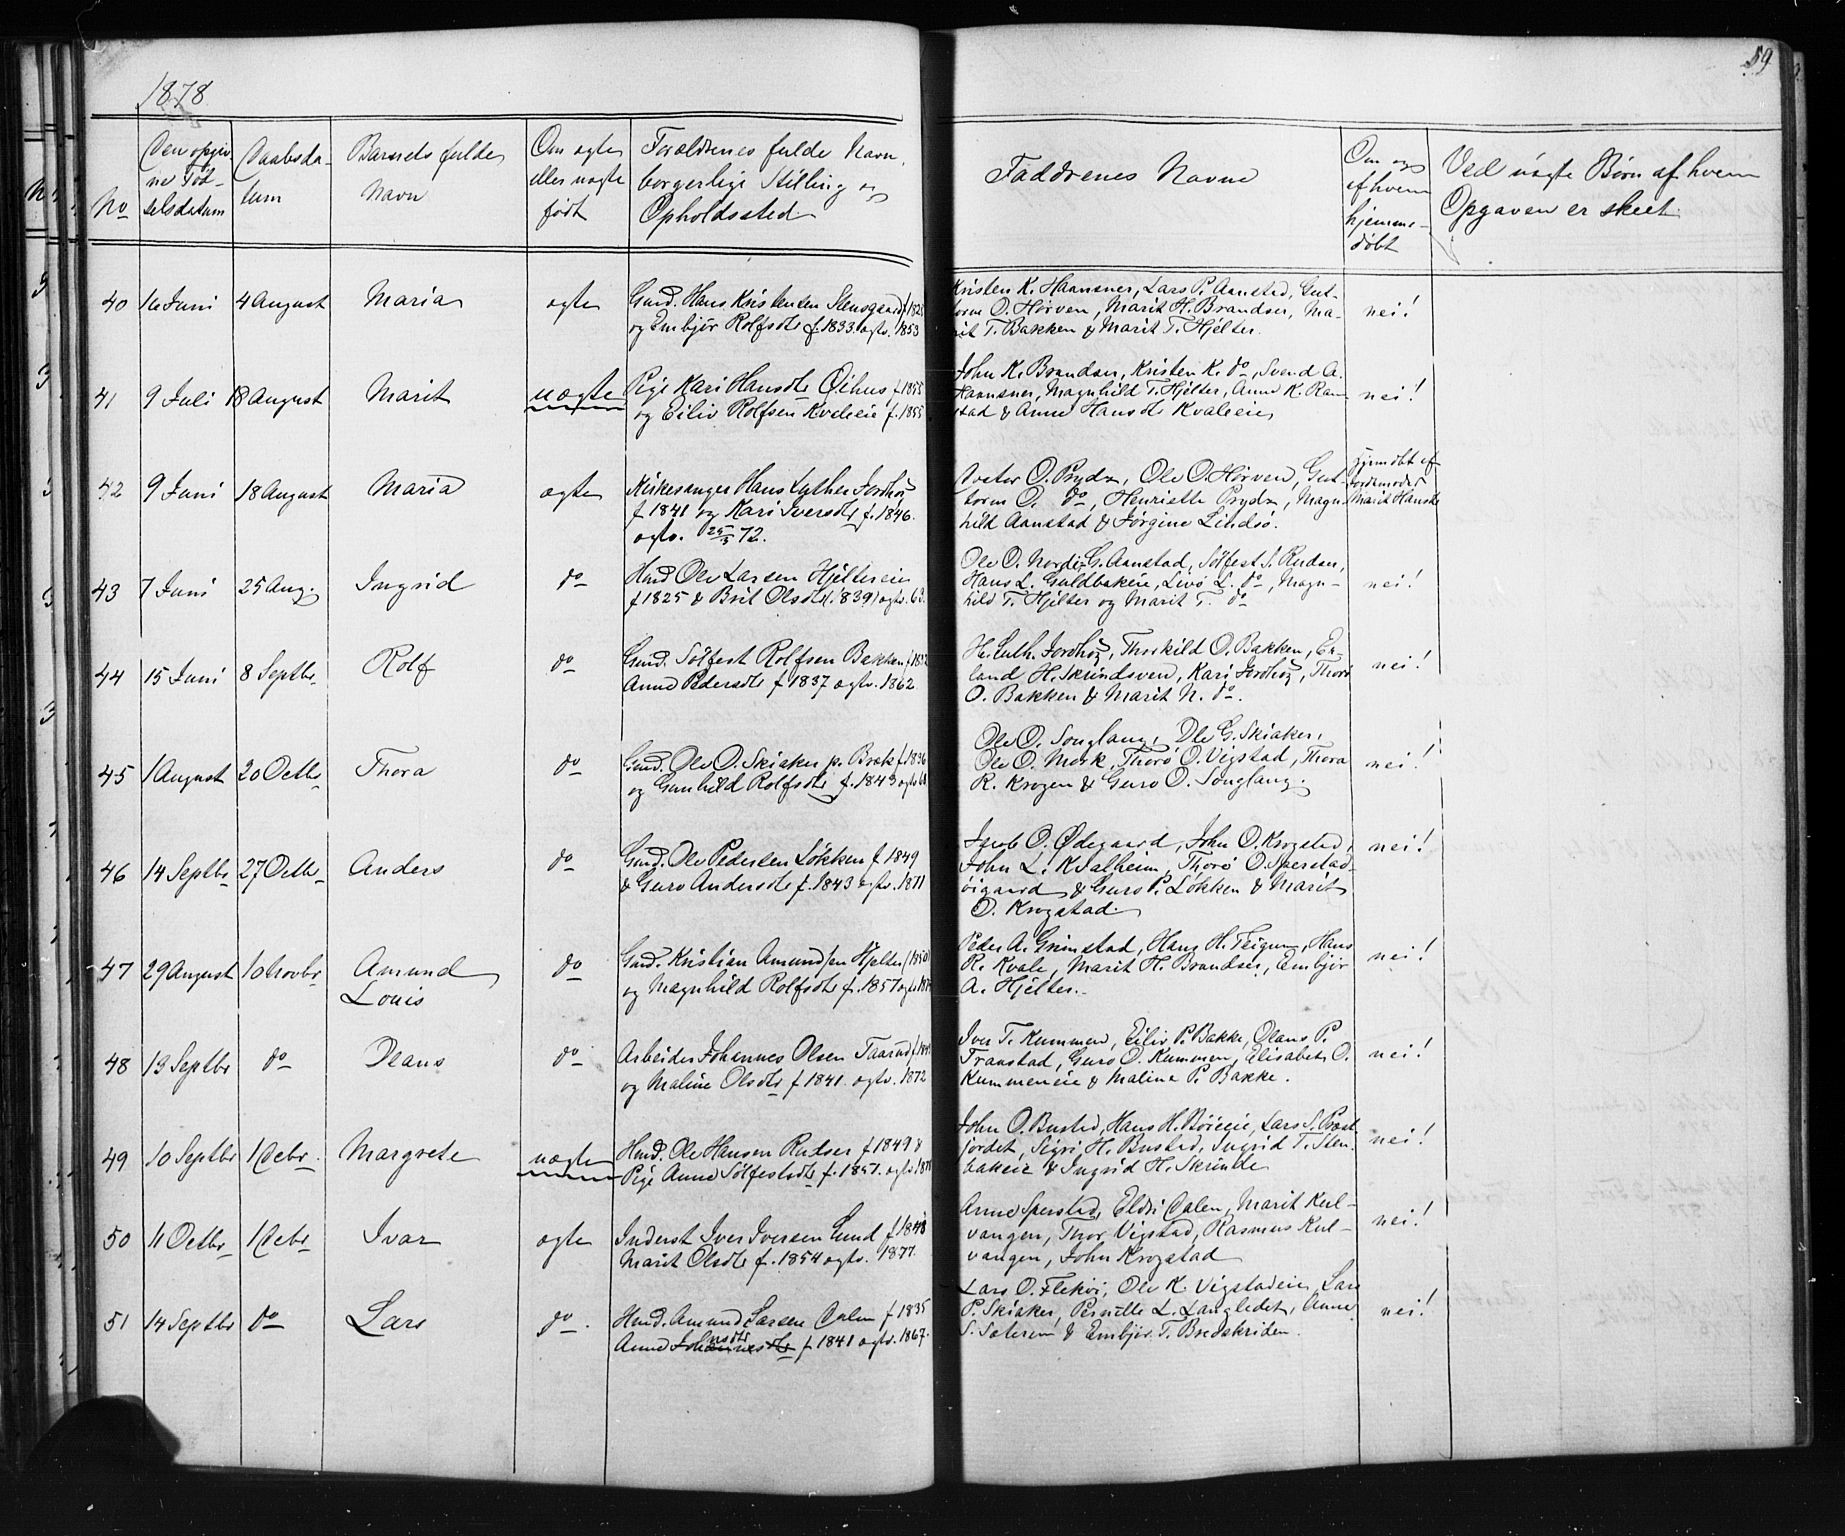 59
1878
No
Den opgiv-
ne Fød-
selsdatum
Daabsda-
tum
Barnets fulde
Navn
Om ægte
eller uægte
født
Forældrenes fulde Navn,
borgerlige Stilling og
Opholdssted
Faddrenes Navne
Om og
af hvem
hjemme-
døbt
Ved uægte Børn af hvem
Opgaven er skeet
40 16 Juni 4 August Maria ægte
Gmd. Hans Kristensen Stensgaard f 1825
og Embjør Rolfsdtr f. 1833 ægtv. 1853
Kristen K. Haansner, Lars P. Aanstad, Gut-
torm O. Hørven, Marit H. Brandser, Ma-
rit T. Bakken & Marit T. Hjelter.
nei!
41 9 Juli 18 August Marit uægte
Pige Kari Hansdtr Øihus f. 1855
og Eiliv Rolfsen Kvaleeie f. 1855
John K. Brandser, Kristen K. do, Svend A.
Haansner, Magnhild T. Hjelter, Anne K. Ram-
stad & Anne Hansdtr Kvaleeie
nei!
42 9 Juni 18 August Maria ægte
Kirkesanger Hans Luther Jordhøy
f 1841 og Kari Iversdtr f. 1846.
ægtv. 25/3 72.
O. Prydz, Ole O. Hørven, Gut-
torm O. do, Henriette Prydz, Magn-
hild Aanstad & Jørgine Lindsø.
Hjemdøbt af
Jordemoder
Marit Hansdtr
43 7 Juni 25 Aug. Ingrid do
Hmd. Ole Larsen Hjeltereie
f 1825 & Brit Olsdtr (1839) ægtv. 63.
Ole O. Nordi G. Aanstad, Sølfest S. Rudser,
Hans L. Guldbakeie, Livø L. do, Magn-
hild T. Hjelter og Marit T. do
nei!
44 15 Juni 8 Septbr. Rolf do
Gmd. Sølfest Rolfsen Bakken f 1832
Anne Pedersdtr f 1837 ægtv. 1862
H. Luth. Jordhøy, Thorkild O. Bakken, Er-
land H. Skrindsven, Kari Jordhøy, Thorø
O. Bakken & Marit N. do.
nei!
45 1 August 20 Octbr Thora do
Gmd. Ole O. Skiaker p. Bræk f. 1836
og Gunhild Rolfsdtr f. 1843 ægtv 68
Ole O. Songlang, Ole G. Skiaker,
Ole O. Mork, Thorø O. Vigstad, Thora
R. Krogen & Guro O. Songlang.
nei!
46 14 Septbr 27 Octbr Anders do
Gmd. Ole Pedersen Løkken f 1849
& Guro Andersdtr f. 1843 ægtv. 1871
Jacob O. Ødegaard, John O. Krogstad,
John L. K Salheim, Thorø O. Sperstad-
øigaard & Guro P. Løkken & Marit
O. Krogstad.
nei!
47 29 August 10 Novbr Amund
Louis do
Gmd. Kristian Amundsen Hjelter (1850)
og Magnhild Rolfsdtr f. 1857 ægtv.
Peder A. Grimstad, Hans H. Teigum, Hans
R. Kvale, Marit H. Brandser, Embjør
A. Hjelter.
nei!
48 13 Septbr do Olaus do
Arbeider Johannes Olsen Taarud
og Maline Olsdtr f 1841. ægtv. 1872
Iver T. Kummen, Eiliv P. Bakke, Olaus P.
Franstad, Guro O. Kummen, Elisabet O.
Kummeneie & Malina P. Bakke.
nei!
49 10 Septbr 1 Decbr. Margrete uægte
Hmd. Ole Hansen Rudser f 1849 &
Pige Anne Sølfestsdtr f. 1851. ægtv. 1878
John O. Bustad, Hans H. Bøieeie, Lars S. Præst-
jordet, Sigri H. Bustad, Ingrid T. Sten-
bakeie & Ingrid H. Skrinde
nei!
50 11 Octbr 1 Decbr Ivar ægte
Inderst Iver Iversen Lund f 1848
Marit Olsdtr f. 1854 ægtv. 1877.
Anne Sperstad, Eldri Dalen, Marit Kul-
vangen, Thor Vigstad, Rasmus Kul-
vangen, John Krogstad
nei!
51 14 Septbr do Lars do.
Hmd. Amund Larsen Dalen f 1835
Anne Johannesdtr f 1841 ægtv. 1867.
Lars O. Flekøi, Ole K. Vigstadeie, Lars
P. Skiaker, Pernille L. Langledet, Anne
S. Solerim & Embjør T. Bredskriden.
nei!